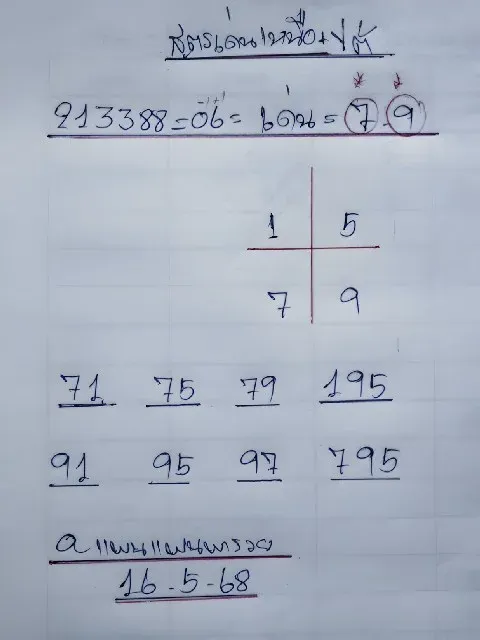 สูตรเด่นเหนือ+ใต้
213388=06= เด่น=7.9
1 5
7 9
71 75 79 195
91 95 97 795
16-5-68